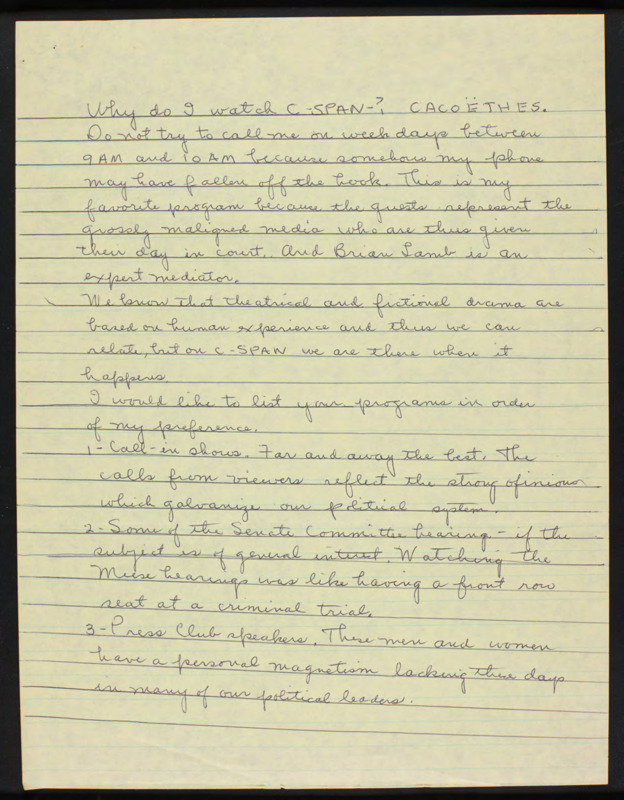 Why do I watch C-SPAN-? CACOËTHES.
Do not try to call me on weekdays between
9 AM and 10 AM because somehow my phone
may have fallen off the hook. This is my
favorite program because the guests represent the
grossly maligned media who are thus given
their day in court. And Brian Lamb is an
expert mediator.
We know that theatrical and fictional drama are
based on human experience and thus we can
relate, but on C-SPAN we are there when it
happens.
I would like to list your programs in order
of my preference.
1- Call-in shows. Far and away the best. The
calls from viewers reflect the strong opinions
which galvanize our political system.
2- Some of the Senate Committee hearing - if the
subject is of general interest. Watching the
Meese hearings was like having a front row
seat at a criminal trial.
3- Press Club speakers. These men and women
have a personal magnetism lacking these days
in many of our political leaders.